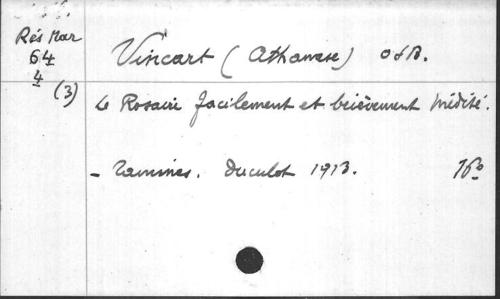 Rés Mar
64
4
(3)
Vincart (Athanase) OSB.
Le Rosaire facilement et brièvement médité.
- Tamines. Duculot 1913. 16°